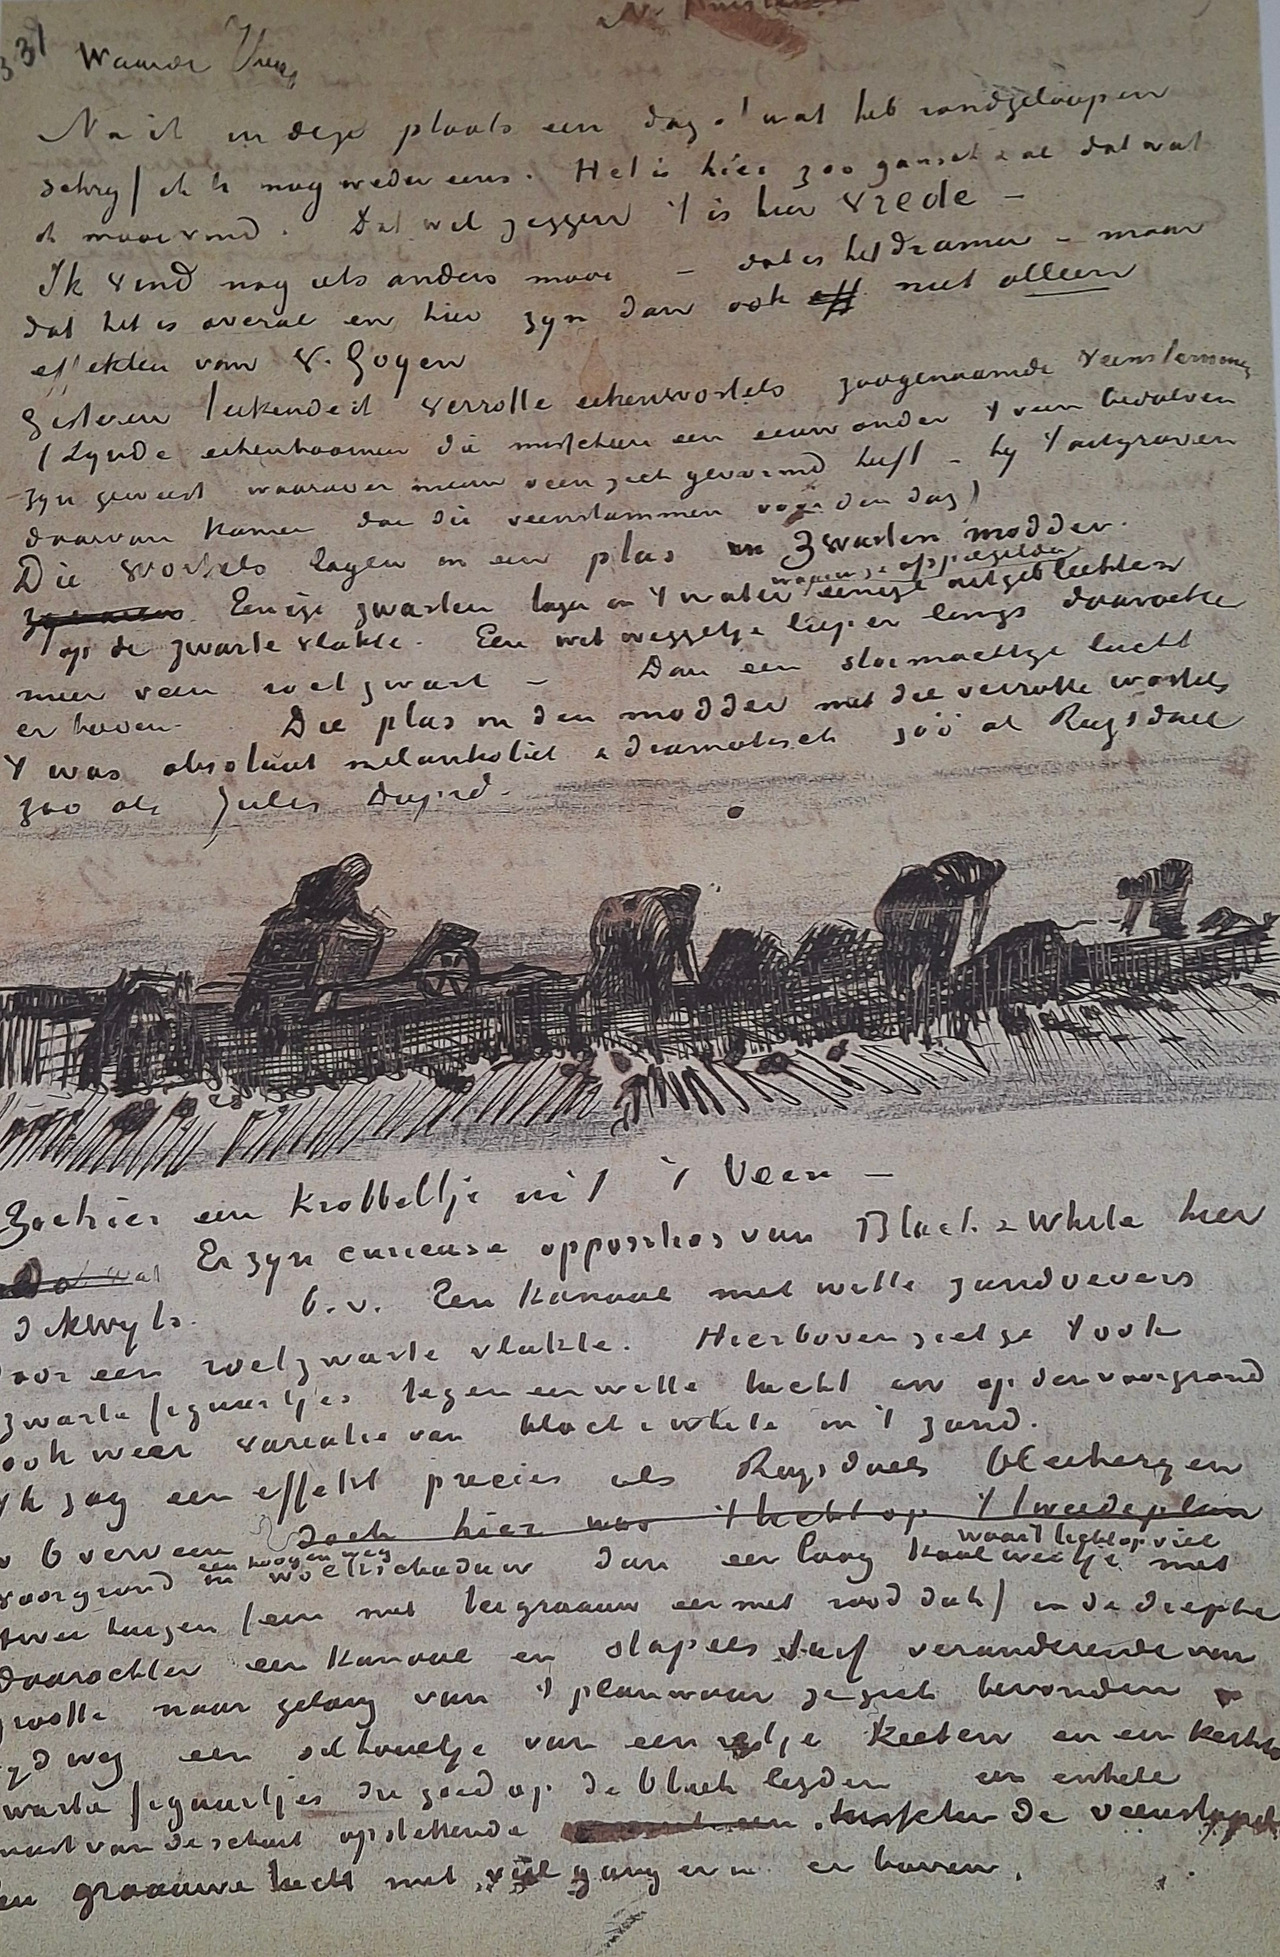 331 Waarde Vriend
N. Amsterdam
Na ik in deze plaats een dag of wat heb rondgeloopen
schryf ik U nog weder eens. Het is hier zoo gansch & al dat wat
ik mooi vind. Dat wil zeggen 't is hier vrede —
Ik vind nog iets anders mooi — dat is het drama — maar
dat het is overal en hier zyn dan ook niet alleen
effekten van V. Goyen
Gisteren teekende ik verrotte eikenwortels zoogenaamde veenstammen
(zynde eikenboomen die misschien een eeuw onder 't veen bedolven
zyn geweest waarover nieuw veen zich gevormd heeft — by 't uitgraven
daarvan komen dan die veenstammen voor den dag)
Die wortels lagen in een plas in zwarten modder.
Eenige zwarten lagen in 't water waarin ze opspiegelden eenige uitgebleekten
op de zwarte vlakte. Een wit weggetje liep er langs daarachter
meer veen roetzwart — Dan een stormachtige lucht
er boven. Die plas in den modder met die verrotte wortels
't was absoluut melankoliek & dramatisch zóó als Ruysdael
zoo als Jules Dupré.
Ziehier een krabbeltje uit 't Veen —
Dat wat Er zyn curieuse opposities van Black & White hier
dikwyls. b.v. Een kanaal met witte zandoevers
door een roetzwarte vlakte. Hierboven ziet ge 't ook
zwarte figuurtjes tegen een witte lucht en op den voorgrond
ook weer variatie van black & white in 't zand.
Ik zag een effekt precies als Ruysdaels bleekeryen
v Overveen doch hier was 't licht op 't tweede plan
voorgrond een hoogen weg in wolkschaduw dan een laag kaal weitje waar 't licht op viel met
twee huizen (een met leigraauw een met rood dak) in de diepte
daarachter een kanaal en stapels turf veranderende van
grootte naar gelang van 't plan waar ze zich bevonden
ver weg een silhouetje van een rytje keeten en een kerktorentje
zwarte figuurtjes die goed op de bleek legden een enkele
mast van de schuit opstekende tusschen de veenstapels
een graauwe lucht met veel gang er in er boven.